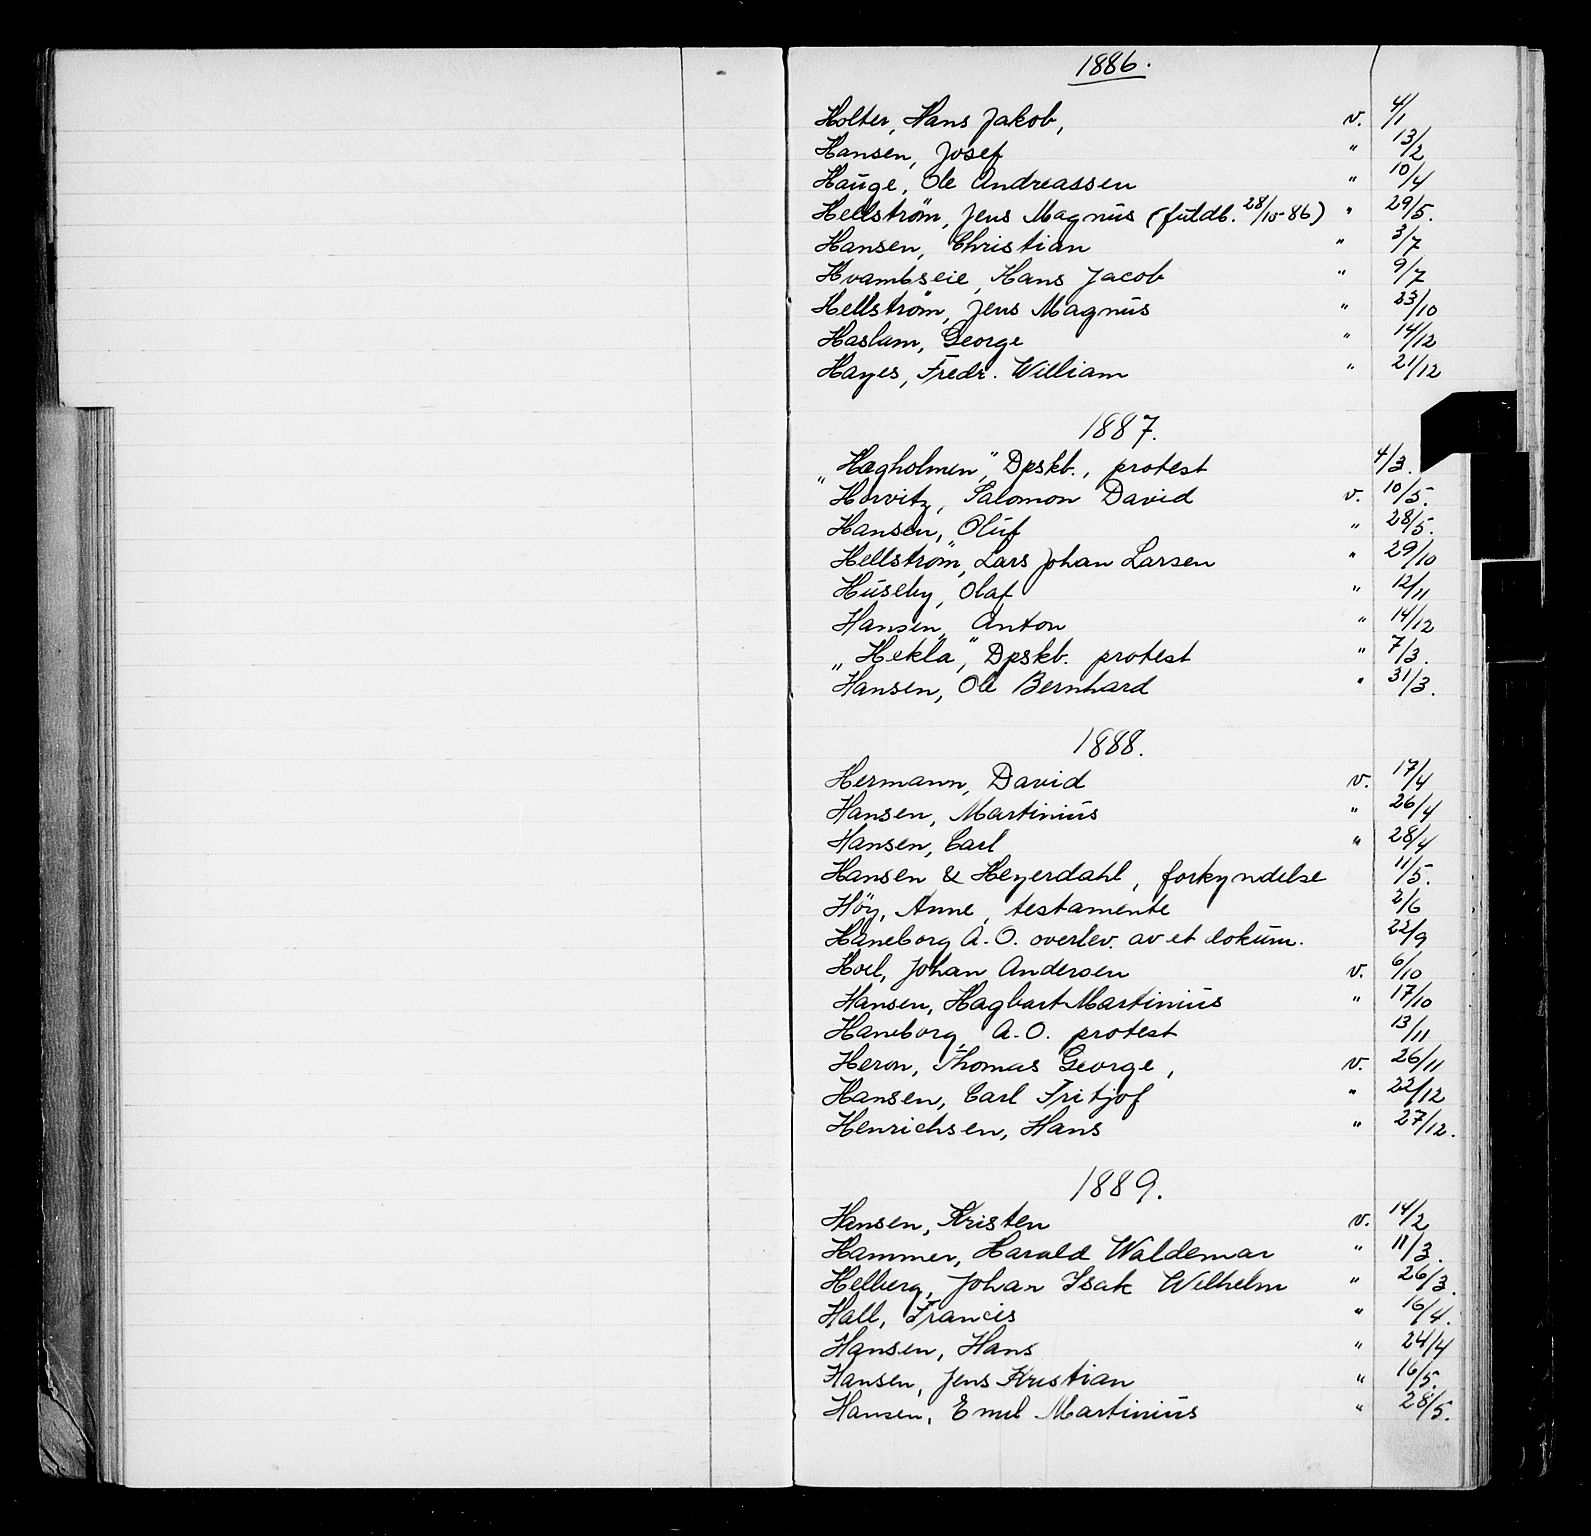 1886.
Holter, Hans Jakob, v. 4/1
Hansen, Josef " 13/2
Hauge, Ole Andreassen " 10/4
Hellström, Jens Magnus (fuldb. 28/10-86) " 29/5.
Hansen, Christian " 3/7
Hvambseie, Hans Jacob " 9/7
Hellström, Jens Magnus " 23/10
Haslam, George " 14/12
Hayes, Fredr. William " 21/12
1887.
„Hægholmen", Dpskb., protest 4/3.
Horvitz, Salomon David v. 10/5.
Hansen, Oluf " 28/5.
Hellström, Lars Johan Larsen " 29/10
Huseby, Olaf " 12/11
Hansen, Anton " 14/12
„Hekla", Dpskb. protest " 7/3.
Hansen, Ole Bernhard " 31/3.
1888.
Hermann, David v. 17/4
Hansen, Martinius " 26/4
Hansen, Carl " 28/4
Hansen & Heyerdahl, forkyndelse 11/5.
Höy, Anne, testamente 2/6
Haneborg A. O. overlev. av et dokum. 22/9
Hoel, Johan Andersen v. 6/10
Hansen, Hagbart Martinius " 17/10
Haneborg, A. O. protest 13/11
Heron, Thomas George, v. 26/11
Hansen, Carl Fritjof " 22/12
Henrichsen, Hans " 27/12.
1889.
Hansen, Kristen v. 14/2
Hammer, Harald Waldemar " 11/3.
Helberg, Johan Isak Wilhelm " 26/3.
Hall, Francis " 16/4.
Hansen, Hans " 24/4
Hansen, Jens Kristian " 16/5.
Hansen, Emil Martinius " 28/5.